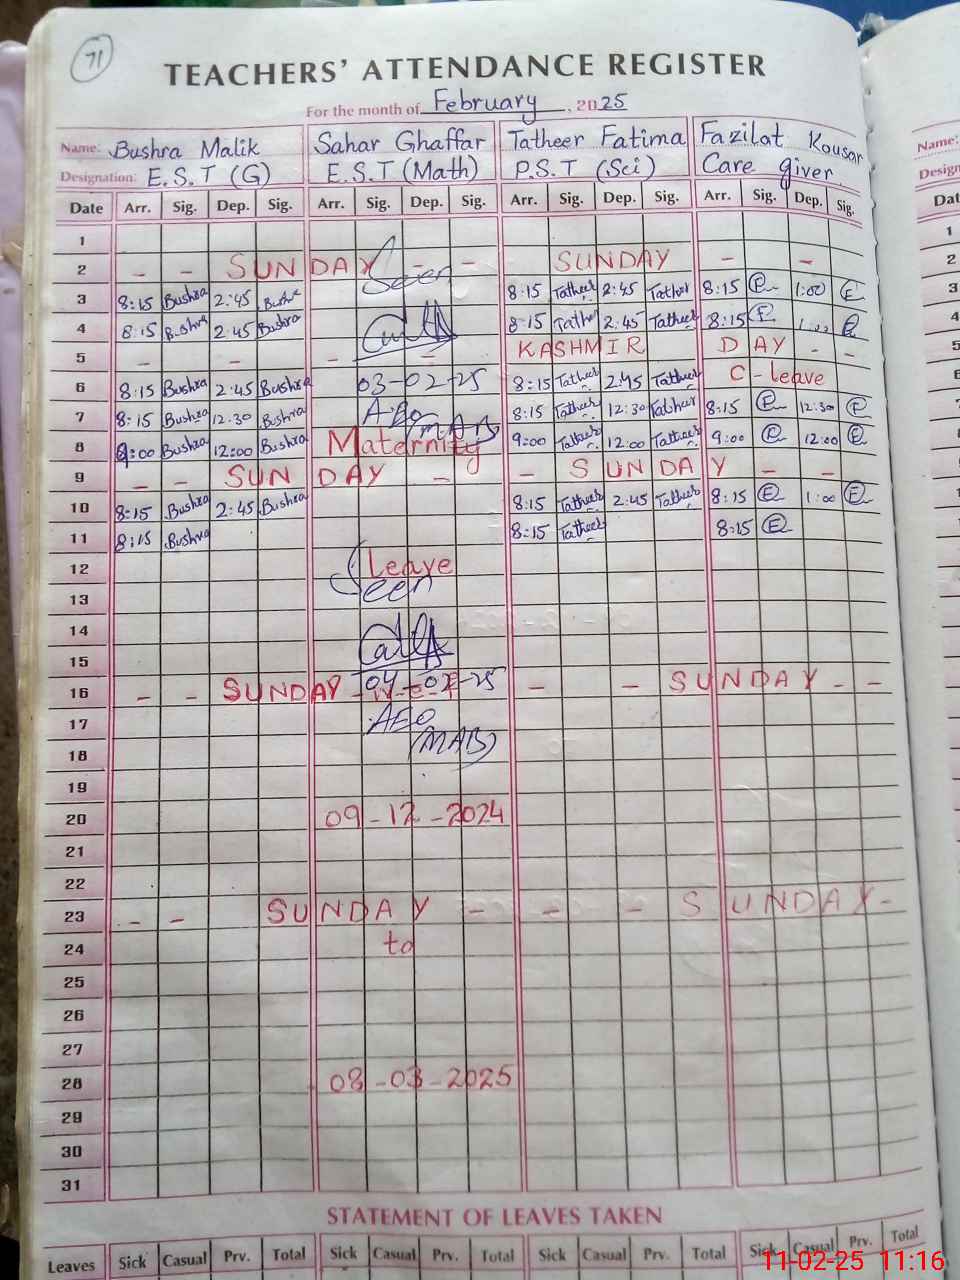 71
TEACHERS' ATTENDANCE REGISTER
For the month of February, 2025
Name: Bushra Malik Sahar Ghaffar Tatheer Fatima Fazilat Kousar
Designation: E.S.T (G) E.S.T (Math) P.S.T (Sci) Care giver
Date Arr. Sig. Dep. Sig. Arr. Sig. Dep. Sig. Arr. Sig. Dep. Sig. Arr. Sig. Dep. Sig.
1
2 - - SUNDAY - - SUNDAY - -
Seen
3 8:15 Bushra 2:45 Bushra 8:15 Tatheer 2:45 Tatheer 8:15 1:00
4 8:15 Bushra 2:45 Bushra 8:15 Tatheer 2:45 Tatheer 8:15 1:00
5 - - - - KASHMIR DAY - -
6 8:15 Bushra 2:45 Bushra 03-02-25 8:15 Tatheer 2:45 Tatheer C-leave
7 8:15 Bushra 12:30 Bushra AEO 8:15 Tatheer 12:30 Tatheer 8:15 12:30
MAB
8 9:00 Bushra 12:00 Bushra Maternity 9:00 Tatheer 12:00 Tatheer 9:00 12:00
9 - - SUNDAY - - SUNDAY - -
10 8:15 Bushra 2:45 Bushra 8:15 Tatheer 2:45 Tatheer 8:15 1:00
11 8:15 Bushra 8:15 Tatheer 8:15
12 Leave
Seen
13
14
15
16 - - SUNDAY 04-02-25 - - SUNDAY - -
17 AEO
MAB
18
19
20 09-12-2024
21
22
23 - - SUNDAY - - - SUNDAY -
24 to
25
26
27
28 08-03-2025
29
30
31
STATEMENT OF LEAVES TAKEN
Leaves Sick Casual Prv. Total Sick Casual Prv. Total Sick Casual Prv. Total Sick Casual Prv. Total
11-02-25 11:16
Name:
Design
Dat
1
2
3
4
5
6
7
8
9
10
11
12
13
14
15
16
17